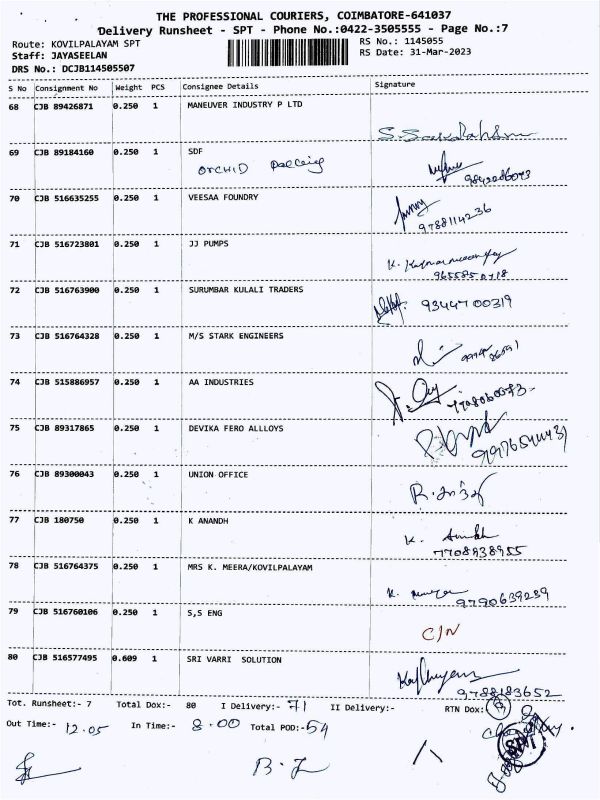 THE PROFESSIONAL COURIERS, COIMBATORE-641037
Delivery Runsheet - SPT - Phone No.:0422-3505555 - Page No.:7
Route: KOVILPALAYAM SPT
RS No.: 1145055
Staff: JAYASEELAN
RS Date: 31-Mar-2023
DRS No.: DCJB114505507
S No Consignment No Weight PCS Consignee Details Signature
68 CJB 89426871 0.250 1 MANEUVER INDUSTRY P LTD
69 CJB 89184160 0.250 1 SDF
ORCHID
70 CJB 516635255 0.250 1 VEESAA FOUNDRY
9788114236
71 CJB 516723801 0.250 1 JJ PUMPS
72 CJB 516763900 0.250 1 SURUMBAR KULALI TRADERS
9344700319
73 CJB 516764328 0.250 1 M/S STARK ENGINEERS
74 CJB 515886957 0.250 1 AA INDUSTRIES
75 CJB 89317865 0.250 1 DEVIKA FERO ALLLOYS
76 CJB 89300043 0.250 1 UNION OFFICE
77 CJB 180750 0.250 1 K ANANDH
7708938955
78 CJB 516764375 0.250 1 MRS K. MEERA/KOVILPALAYAM
9790639289
79 CJB 516760106 0.250 1 S,S ENG
C/N
80 CJB 516577495 0.609 1 SRI VARRI SOLUTION
9788183652
Tot. Runsheet:- 7 Total Dox:- 80 I Delivery:- 71 II Delivery:- RTN Dox:
Out Time:- 12.05 In Time:- 8.00 Total POD:- 54